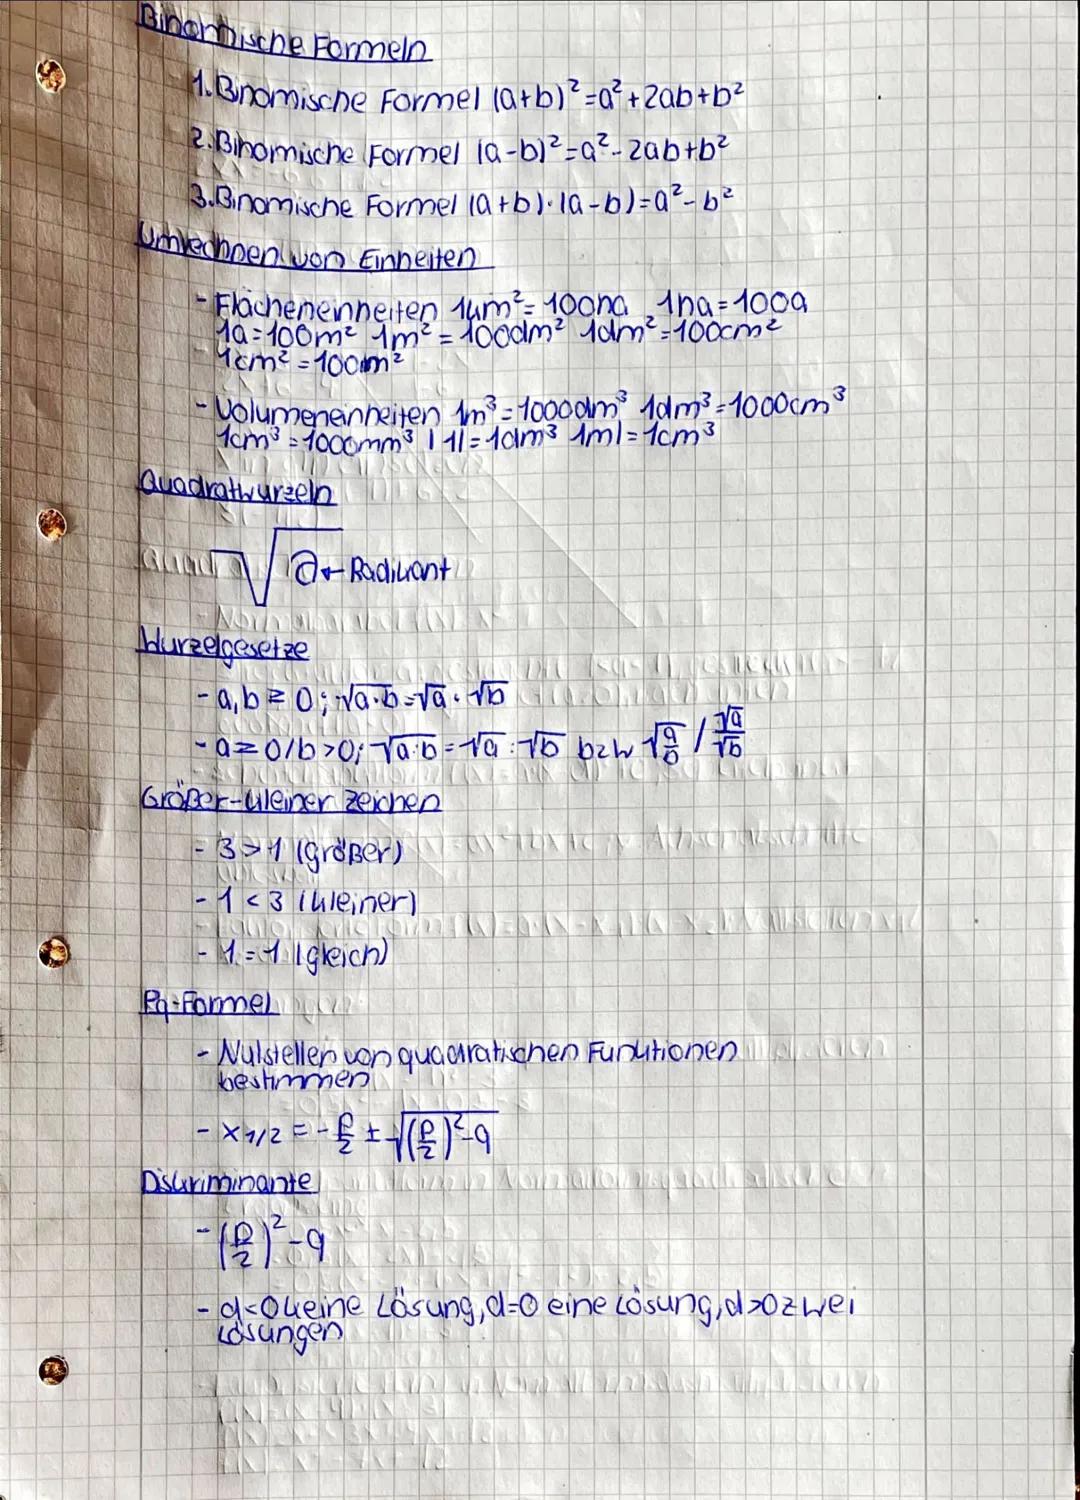 Binomische Formeln
1. Binomische Formel (a+b)²=a²+2ab+b²
2. Binomische Formel (a-b)²=a²-2ab+b²
3. Binomische Formel (a+b)·(a-b)=a²-b²
Umrechnen von Einheiten
- Flächeneinheiten 1km²=100ha 1ha=100a
1a=100m² 1m²=100dm² 1dm²=100cm²
1cm²=100mm²
- Volumeneinheiten 1m³=1000dm³ 1dm³=1000cm³
1cm³=1000mm³ | 1l=1dm³ 1ml=1cm³
Quadratwurzeln
√a ← Radikant
Wurzelgesetze
- a,b ≥ 0; √a·b=√a · √b
- a≥0/b>0; √a:b=√a:√b bzw √a/b / √a/√b
Größer-kleiner zeichen
- 3>1 (größer)
- 1<3 (kleiner)
- 1=1 (gleich)
Pq-Formel
- Nulstellen von quadratischen Funktionen
bestimmen
- x1/2 = -p/2 ± √(p/2)²-q
Diskriminante
- (p/2)²-q
- d<0 keine Lösung, d=0 eine Lösung, d>0 zwei
Lösungen